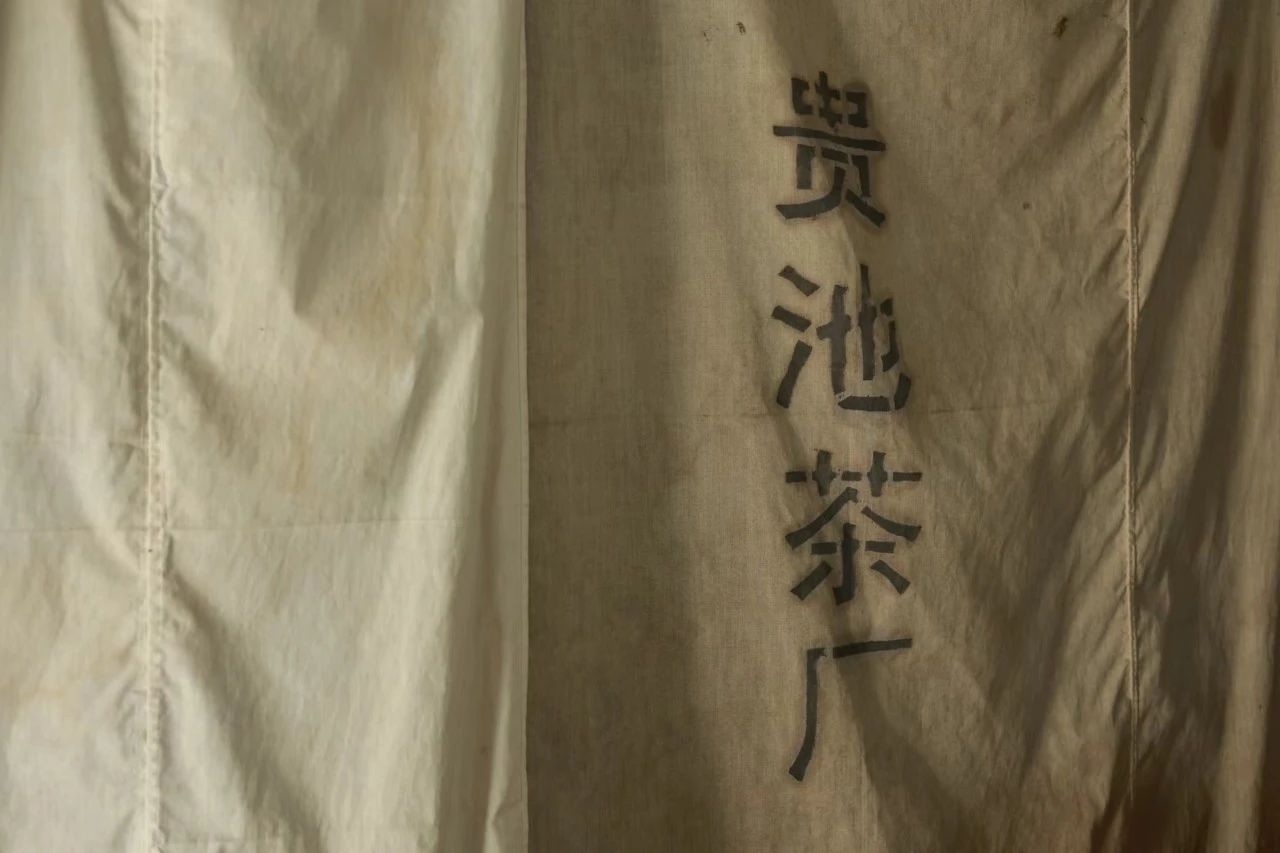 贵池茶厂